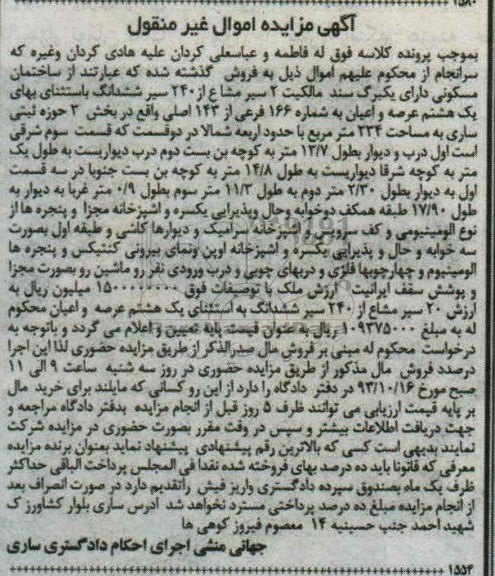 ۱۵۸۰
آگهی مزایده اموال غیر منقول
بموجب پرونده کلاسه فوق له فاطمه و عباسعلی کردان علیه هادی کردان وغیره که
سرانجام از محکوم علیهم اموال ذیل به فروش گذشته شده که عبارتند از ساختمان
مسکونی دارای یکبرگ سند مالکیت ۲ سیر مشاع از ۲۴۰ سیر ششدانگ باستثنای بهای
یک هشتم عرصه و اعیان به شماره ۱۶۶ فرعی از ۱۴۳ اصلی واقع در بخش ۳ حوزه ثبتی
ساری به مساحت ۲۳۴ متر مربع با حدود اربعه شمالا در دوقسمت که قسمت سوم شرقی
است اول درب و دیوار بطول ۱۳/۷ متر به کوچه بن بست دوم درب دیواریست به طول یک
متر به کوچه شرقا دیواریست به طول ۱۴/۸ متر به کوچه بن بست جنوبا در سه قسمت
اول به دیوار بطول ۲/۳۰ متر دوم به طول ۱۱/۳ متر سوم بطول ۰/۹ متر غربا به دیوار به
طول ۱۷/۹۰ طبقه همکف دوخوابه وحال وپذیرایی یکسره و اشپزخانه مجزا و پنجره ها از
نوع الومینیومی و کف سرویس و اشپزخانه سرامیک و دیوارها کاشی و طبقه اول بصورت
سه خوابه و حال و پذیرایی یکسره و اشپزخانه اوپن ونمای بیرونی کنتیکس و پنجره ها
الومینیوم و چهارچوبها فلزی و دربهای چوبی و درب ورودی نفر رو ماشین رو بصورت مجزا
و پوشش سقف ایرانیت ارزش ملک با توصیفات فوق ۱۵۰۰۰۰۰۰۰۰ میلیون ریال به
ارزش ۲۰ سیر مشاع از ۲۴۰ سیر ششدانگ به استثنای یک هشتم عرصه و اعیان محکوم
له به مبلغ ۱۰۹۳۷۵۰۰۰ ریال به عنوان قیمت پایه تعیین و اعلام می گردد و باتوجه به
درخواست محکوم له مبنی بر فروش مال صدرالذکر از طریق مزایده حضوری لذا این اجرا
درصدد فروش مال مذکور از طریق مزایده حضوری در روز سه شنبه ساعت ۹ الی ۱۱
صبح مورخ ۹۳/۱۰/۱۶ در دفتر دادگاه را دارد از این رو کسانی که مایلند برای خرید مال
بر پایه قیمت ارزیابی می توانند ظرف ۵ روز قبل از انجام مزایده بدفتر دادگاه مراجعه و
جهت دریافت اطلاعات بیشتر و سپس در وقت مقرر بصورت حضوری در مزایده شرکت
نمایند بدیهی است کسی که بالاترین رقم پیشنهادی پیشنهاد نماید بعنوان برنده مزایده
معرفی که قانونا باید ده درصد بهای فروخته شده نقدا فی المجلس پرداخت الباقی حداکثر
ظرف یک ماه بصندوق سپرده دادگستری واریز فیش راتقدیم دارد در صورت انصراف بعد
از انجام مزایده مبلغ ده درصد پرداختی مسترد نخواهد شد ادرس ساری بلوار کشاورز ک
شهید احمد جنب حسینیه ۱۴ معصوم فیروز کوهی ها
جهانی منشی اجرای احکام دادگستری ساری
۱۵۵۴